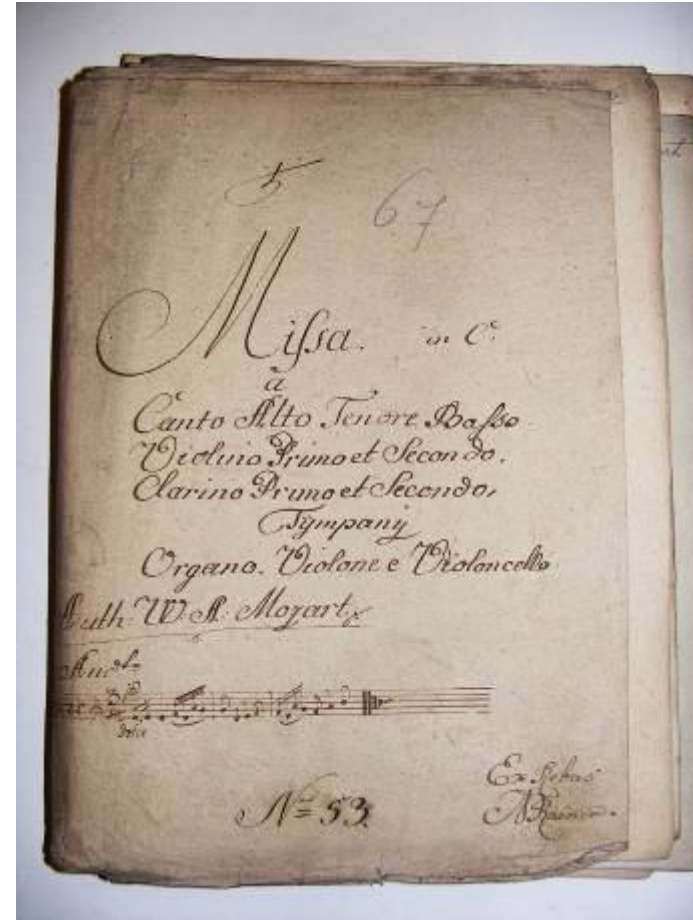 5
67
Missa. in C.
à
Canto Alto Tenore Basso
Violino Primo et Secondo.
Clarino Primo et Secondo,
Tÿmpanÿ
Organo. Violone e Violoncello.
Auth: W: A: Mozart
And.te
dolce
No= 53.
Ex Rebus